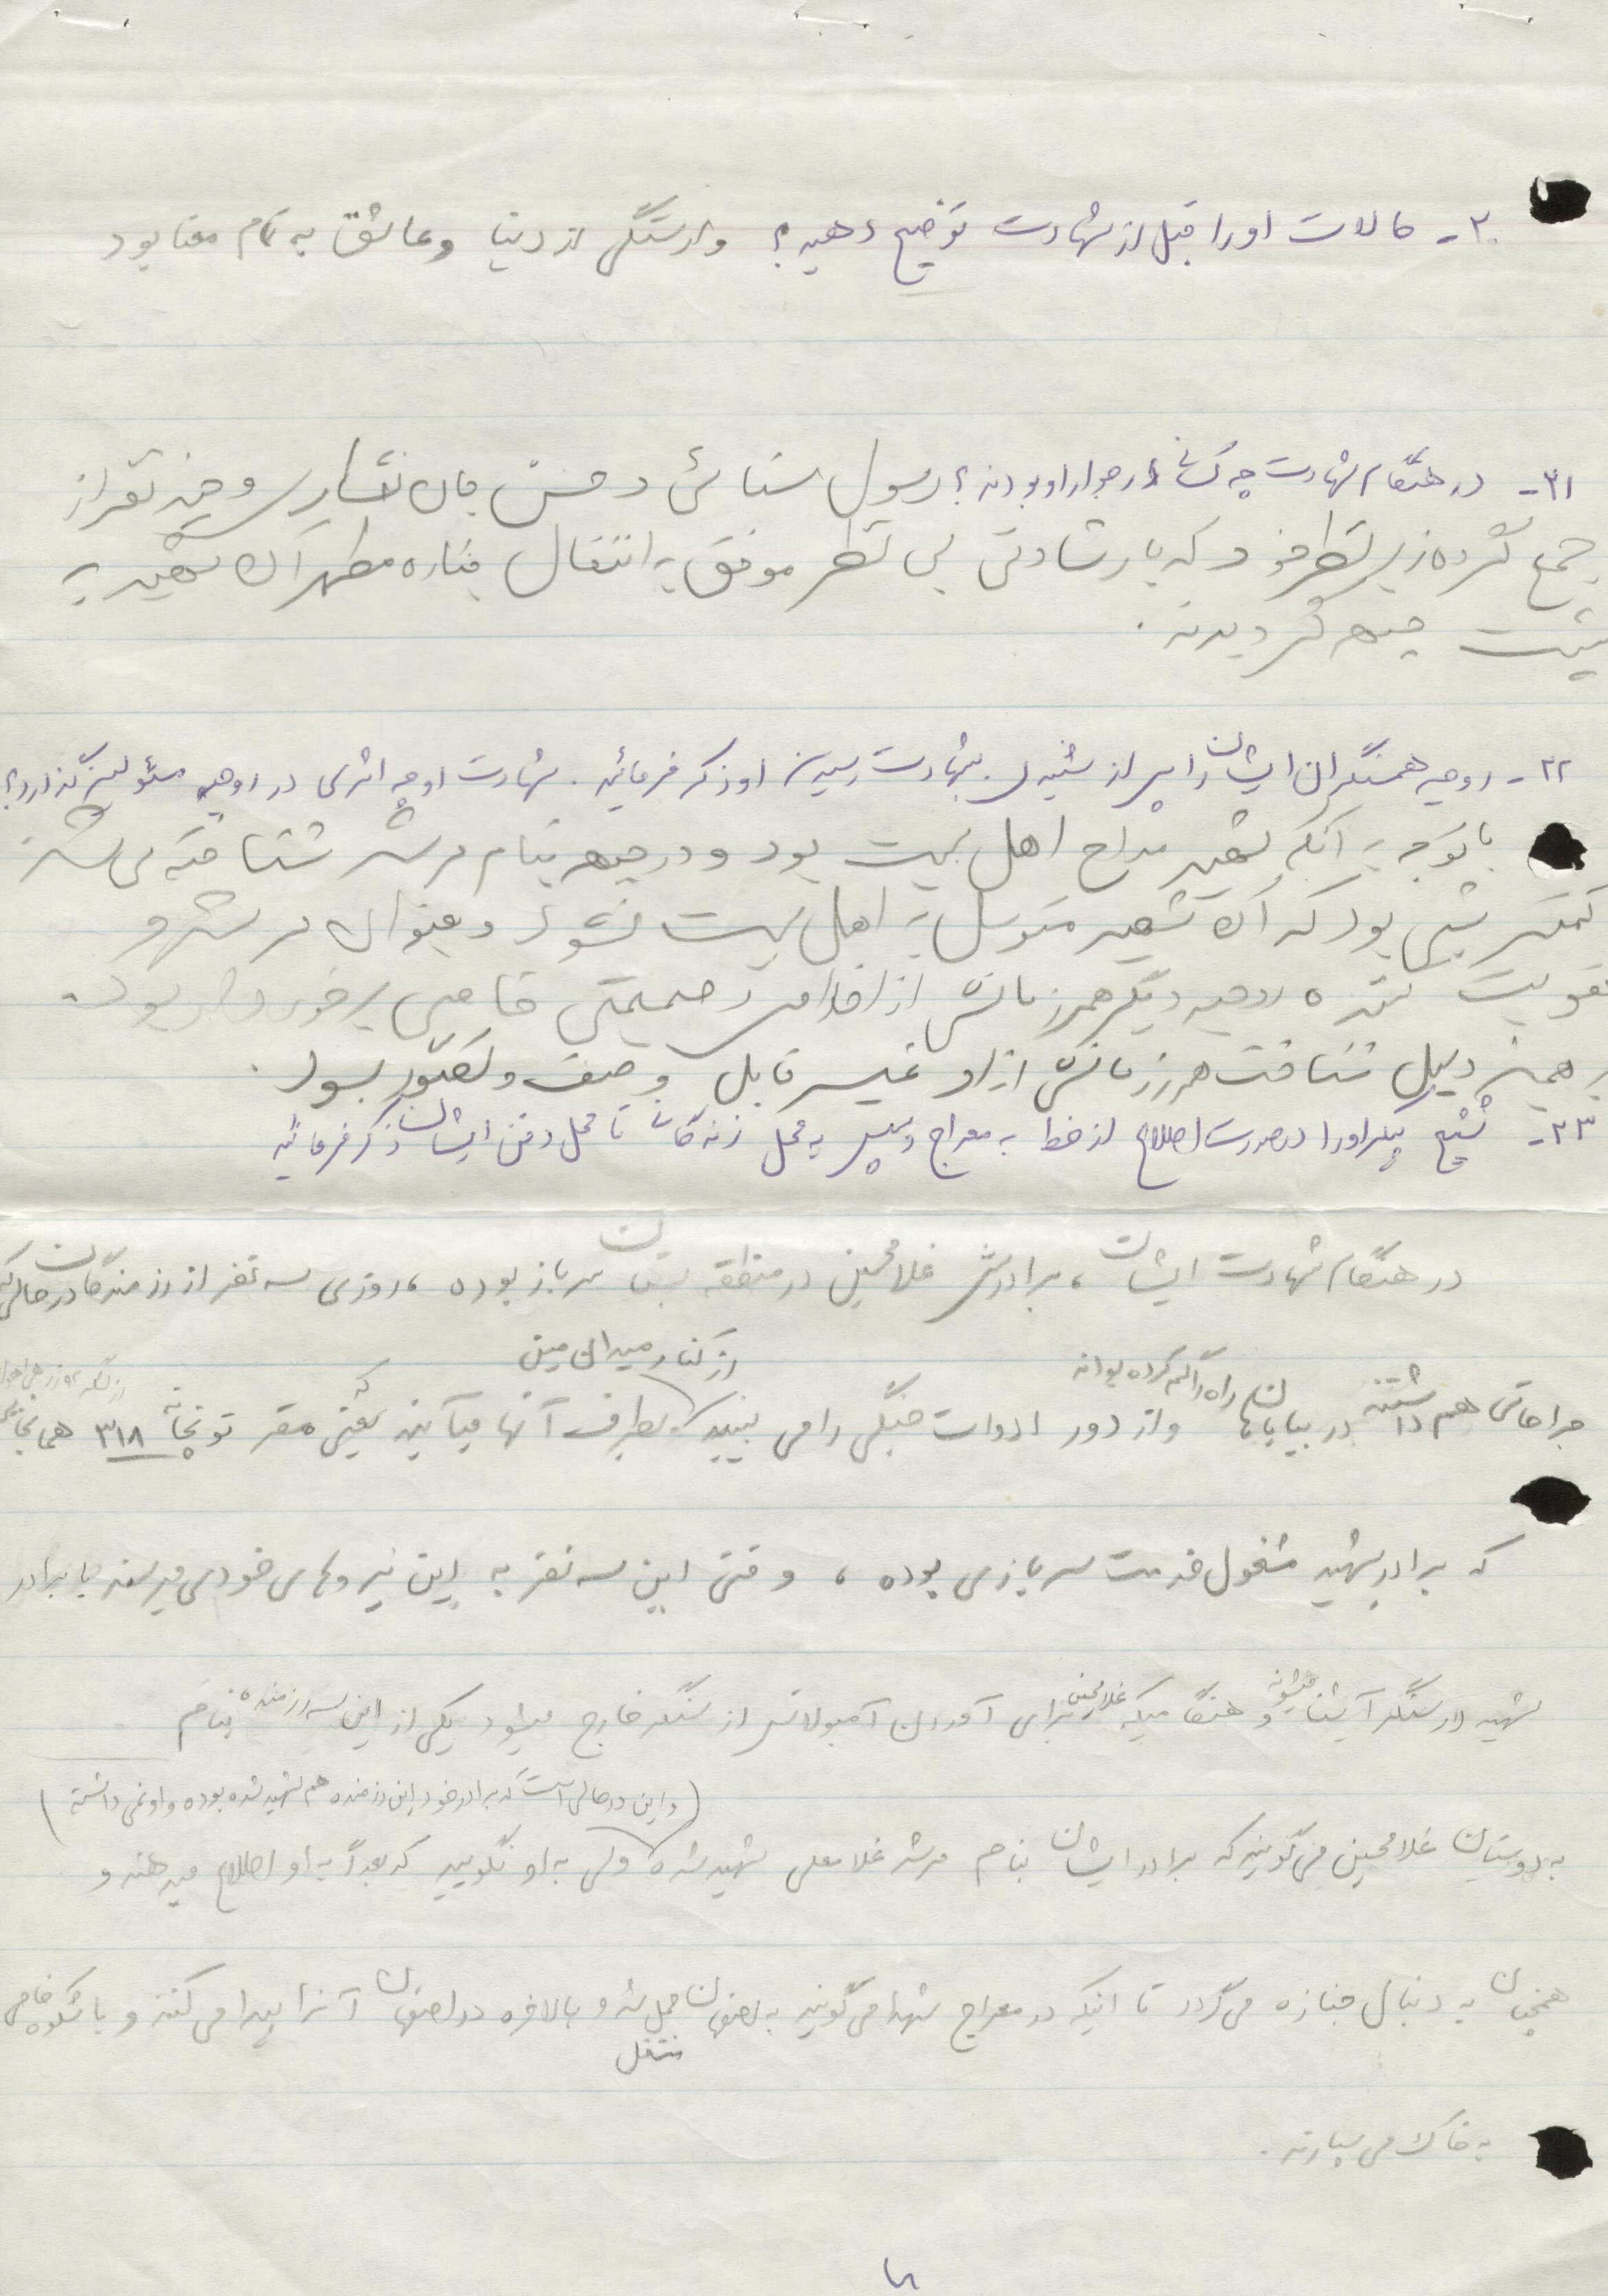 ۳۰- حالات او را قبل از شهادت توضیح دهید؟ وارستگی از دنیا و عاشق به تمام معنا بود
۳۱- در هنگام شهادت چه کسانی در جوار او بودند؟ رسول سنائی و حسن جان نثاری و چند نفر از
جمع گروه زیر نظر خود که با رشادتی بی نظیر موفق به انتقال جنازه مطهر آن شهید به
پشت جبهه گردیدند.
۳۲- روحیه همسنگران ایشان را پس از شنیدن بشهادت رسیدن او ذکر فرمائید. شهادت او چه اثری در روحیه مسئولین گذارد؟
با توجه به آنکه شهید مداح اهل بیت بود و در جبهه بنام مرشد شناخته می شد
کمتر شبی بود که آن شهید متوسل به اهل بیت نشود و بعنوان مرشد و
تقویت کننده روحیه دیگر همرزمانش از اخلاص و صمیمتی خاصی برخوردار بود.
به همین دلیل شناخت همرزمانش از او غیر قابل وصف و تصور بود.
۳۳- تشیع پیکر او را در صورت اطلاع از خط به معراج و سپس به محل زندگانی تا محل دفن ایشان ذکر فرمائید
در هنگام شهادت ایشان، برادرش غلامحسین در منطقه بستان سرباز بوده، روزی سه نفر از رزمندگان در حالی که
از کنار میدان مین
جراحاتی هم داشتند در بیابانها راه را گم کرده بودند و از دور ادوات جنگی را می بینند که بطرف آنها میآیند یعنی مقر توپخانه ۳۱۸ همانجائی
که برادر شهید مشغول خدمت سربازی بوده، وقتی این سه نفر به این نیروهای خودی میرسند با برادر
شهید در سنگر آشنا میشوند و هنگامیکه غلامحسین برای آوردن آمبولانس از سنگر خارج میشود یکی از این سه رزمنده بنام
(و این در حالی است که برادر خود این رزمنده هم شهید شده بوده و او نمی دانسته)
به دوستان غلامحسین می گویند که برادر ایشان بنام مرشد غلامعلی شهید شده ولی به او نگویید که بعداً به او اطلاع میدهند و
همچنان به دنبال جنازه می گردد تا اینکه در معراج شهدا می گویند به اصفهان حمل شد و بالاخره در اصفهان آنرا پیدا می کنند و با شکوه خاصی
منتقل
به خاک می سپارند.